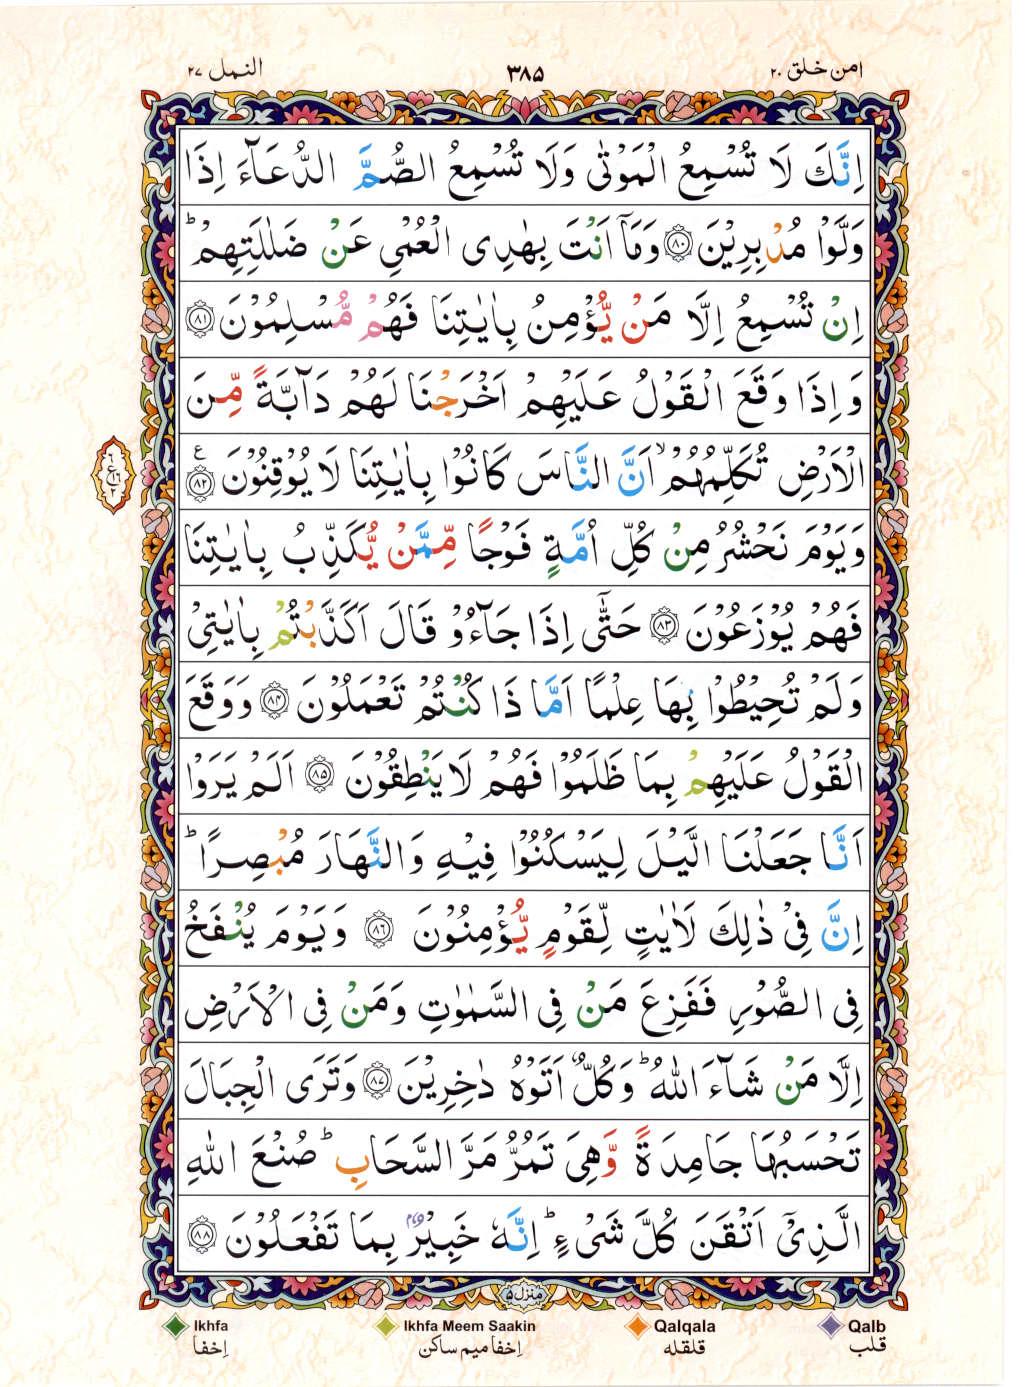 امن خلق ٢٠ ٣٨٥ النمل ٢٧
اِنَّكَ لَا تُسْمِعُ الْمَوْتٰى وَلَا تُسْمِعُ الصُّمَّ الدُّعَآءَ اِذَا
وَلَّوْا مُدْبِرِيْنَ ﴿٨٠﴾ وَمَاۤ اَنْتَ بِهٰدِى الْعُمْيِ عَنْ ضَلٰلَتِهِمْ ؕ
اِنْ تُسْمِعُ اِلَّا مَنْ يُّؤْمِنُ بِاٰيٰتِنَا فَهُمْ مُّسْلِمُوْنَ ﴿٨١﴾
وَاِذَا وَقَعَ الْقَوْلُ عَلَيْهِمْ اَخْرَجْنَا لَهُمْ دَآبَّةً مِّنَ
الْاَرْضِ تُكَلِّمُهُمْ ۙ اَنَّ النَّاسَ كَانُوْا بِاٰيٰتِنَا لَا يُوْقِنُوْنَ ﴿٨٢﴾ ع
وَيَوْمَ نَحْشُرُ مِنْ كُلِّ اُمَّةٍ فَوْجًا مِّمَّنْ يُّكَذِّبُ بِاٰيٰتِنَا
فَهُمْ يُوْزَعُوْنَ ﴿٨٣﴾ حَتّٰۤى اِذَا جَآءُوْ قَالَ اَكَذَّبْتُمْ بِاٰيٰتِىْ
وَلَمْ تُحِيْطُوْا بِهَا عِلْمًا اَمَّا ذَا كُنْتُمْ تَعْمَلُوْنَ ﴿٨٤﴾ وَوَقَعَ
الْقَوْلُ عَلَيْهِمْ بِمَا ظَلَمُوْا فَهُمْ لَا يَنْطِقُوْنَ ﴿٨٥﴾ اَلَمْ يَرَوْا
اَنَّا جَعَلْنَا الَّيْلَ لِيَسْكُنُوْا فِيْهِ وَالنَّهَارَ مُبْصِرًا ؕ
اِنَّ فِىْ ذٰلِكَ لَاٰيٰتٍ لِّقَوْمٍ يُّؤْمِنُوْنَ ﴿٨٦﴾ وَيَوْمَ يُنْفَخُ
فِى الصُّوْرِ فَفَزِعَ مَنْ فِى السَّمٰوٰتِ وَمَنْ فِى الْاَرْضِ
اِلَّا مَنْ شَآءَ اللّٰهُ ؕ وَكُلٌّ اَتَوْهُ دٰخِرِيْنَ ﴿٨٧﴾ وَتَرَى الْجِبَالَ
تَحْسَبُهَا جَامِدَةً وَّهِىَ تَمُرُّ مَرَّ السَّحَابِ ؕ صُنْعَ اللّٰهِ
الَّذِىْۤ اَتْقَنَ كُلَّ شَىْءٍ ؕ اِنَّهٗ خَبِيْرٌۢ بِمَا تَفْعَلُوْنَ ﴿٨٨﴾
منزل ۵
Ikhfa Ikhfa Meem Saakin Qalqala Qalb
اِخفا اِخفا میم ساکن قلقله قلب